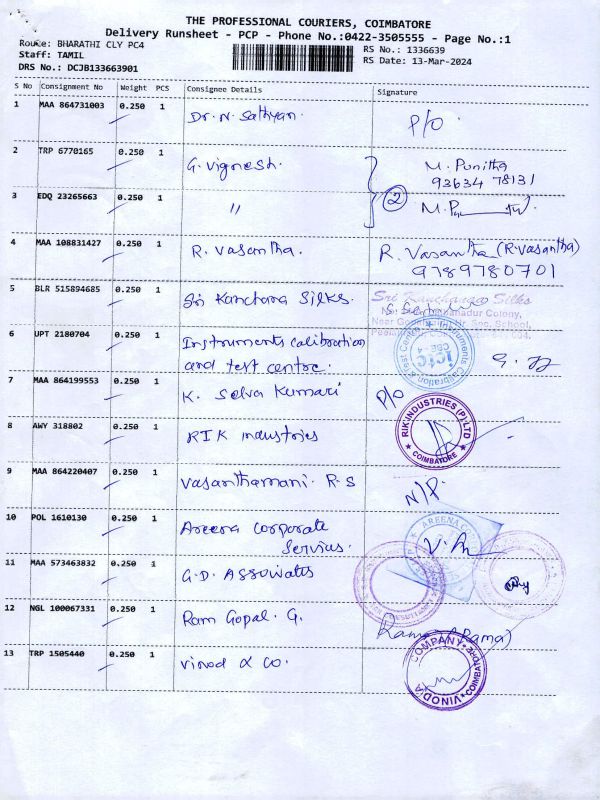 THE PROFESSIONAL COURIERS, COIMBATORE
Delivery Runsheet - PCP - Phone No.:0422-3505555 - Page No.:1
Route: BHARATHI CLY PC4
RS No.: 1336639
Staff: TAMIL
RS Date: 13-Mar-2024
DRS No.: DCJB133663901
S No Consignment No Weight PCS Consignee Details Signature
1 MAA 864731003 0.250 1 Dr. N. Sathyan. P/O
2 TRP 6770165 0.250 1 G. Vignesh. M. Punitha
93634 78131
3 EDQ 23265663 0.250 1 " 2
4 MAA 108831427 0.250 1 R. Vasantha. R. Vasantha (R.Vasantha)
9789780701
5 BLR 515894685 0.250 1 Sri Kanchana Silks. Sri Kanchanaa Silks
6 UPT 2180704 0.250 1 Instruments calibration
and test centre.
7 MAA 864199553 0.250 1 K. Selva Kumari P/O
8 AWY 318802 0.250 1 RIK industries RIK INDUSTRIES (P) LTD
COIMBATORE
9 MAA 864220407 0.250 1 Vasanthamani. R.S N/P.
10 POL 1610130 0.250 1 Areena corporate
Servius.
AREENA CO
11 MAA 573463832 0.250 1 G.D. Associates
12 NGL 100067331 0.250 1 Ram Gopal. G. Rama (Rama)
13 TRP 1505440 0.250 1 Vinod & Co. VINODIA COMPANY
COIMBATORE